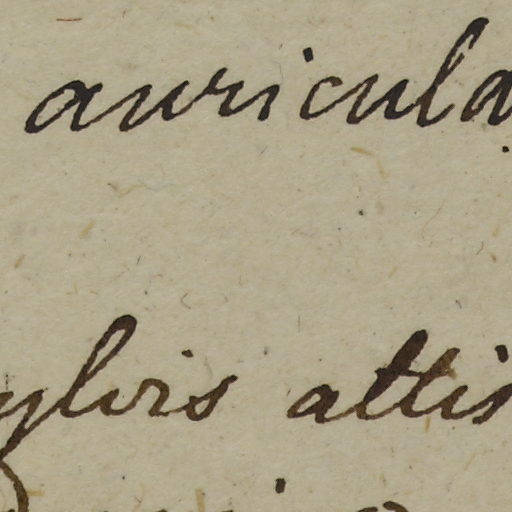 auricula
ylvis attis